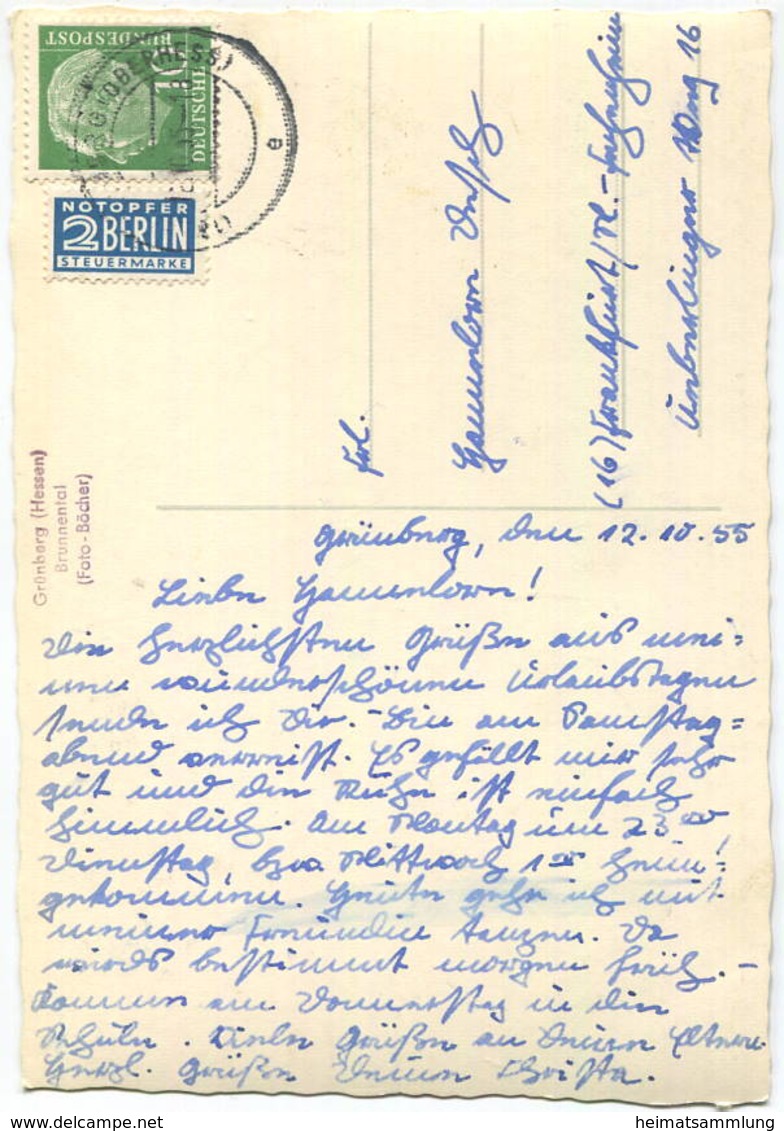 BUNDESPOST
10
DEUTSCHE
(OBERHESS)
e
NOTOPFER
2 BERLIN
STEUERMARKE
Grünberg (Hessen)
Brunnental
(Foto-Böcher)
Frl.
Hannelore
(16) Frankfurt/M.-Eschersheim
Weg 16
Grünberg, den 12.10.55
Liebe Hannelore!
Die herzlichsten Grüße aus mei=
nen wunderschönen Urlaubstagen
sende ich Dir. - Bin am Samstag=
abend verreist. Es gefällt mir sehr
gut und die Ruhe ist einfach
himmlich. Am Montag um 23 00
Dienstag, bzw. Mittwoch 1 00 heim!
gekommen. Heute gehe ich mit
meiner Freundin tanzen. Da
wirds bestimmt morgen früh. -
Komme am Donnerstag in die
Schule. Viele Grüße an Deine Eltern.
Herzl. Grüße Deine Christa.
heimatsammlung